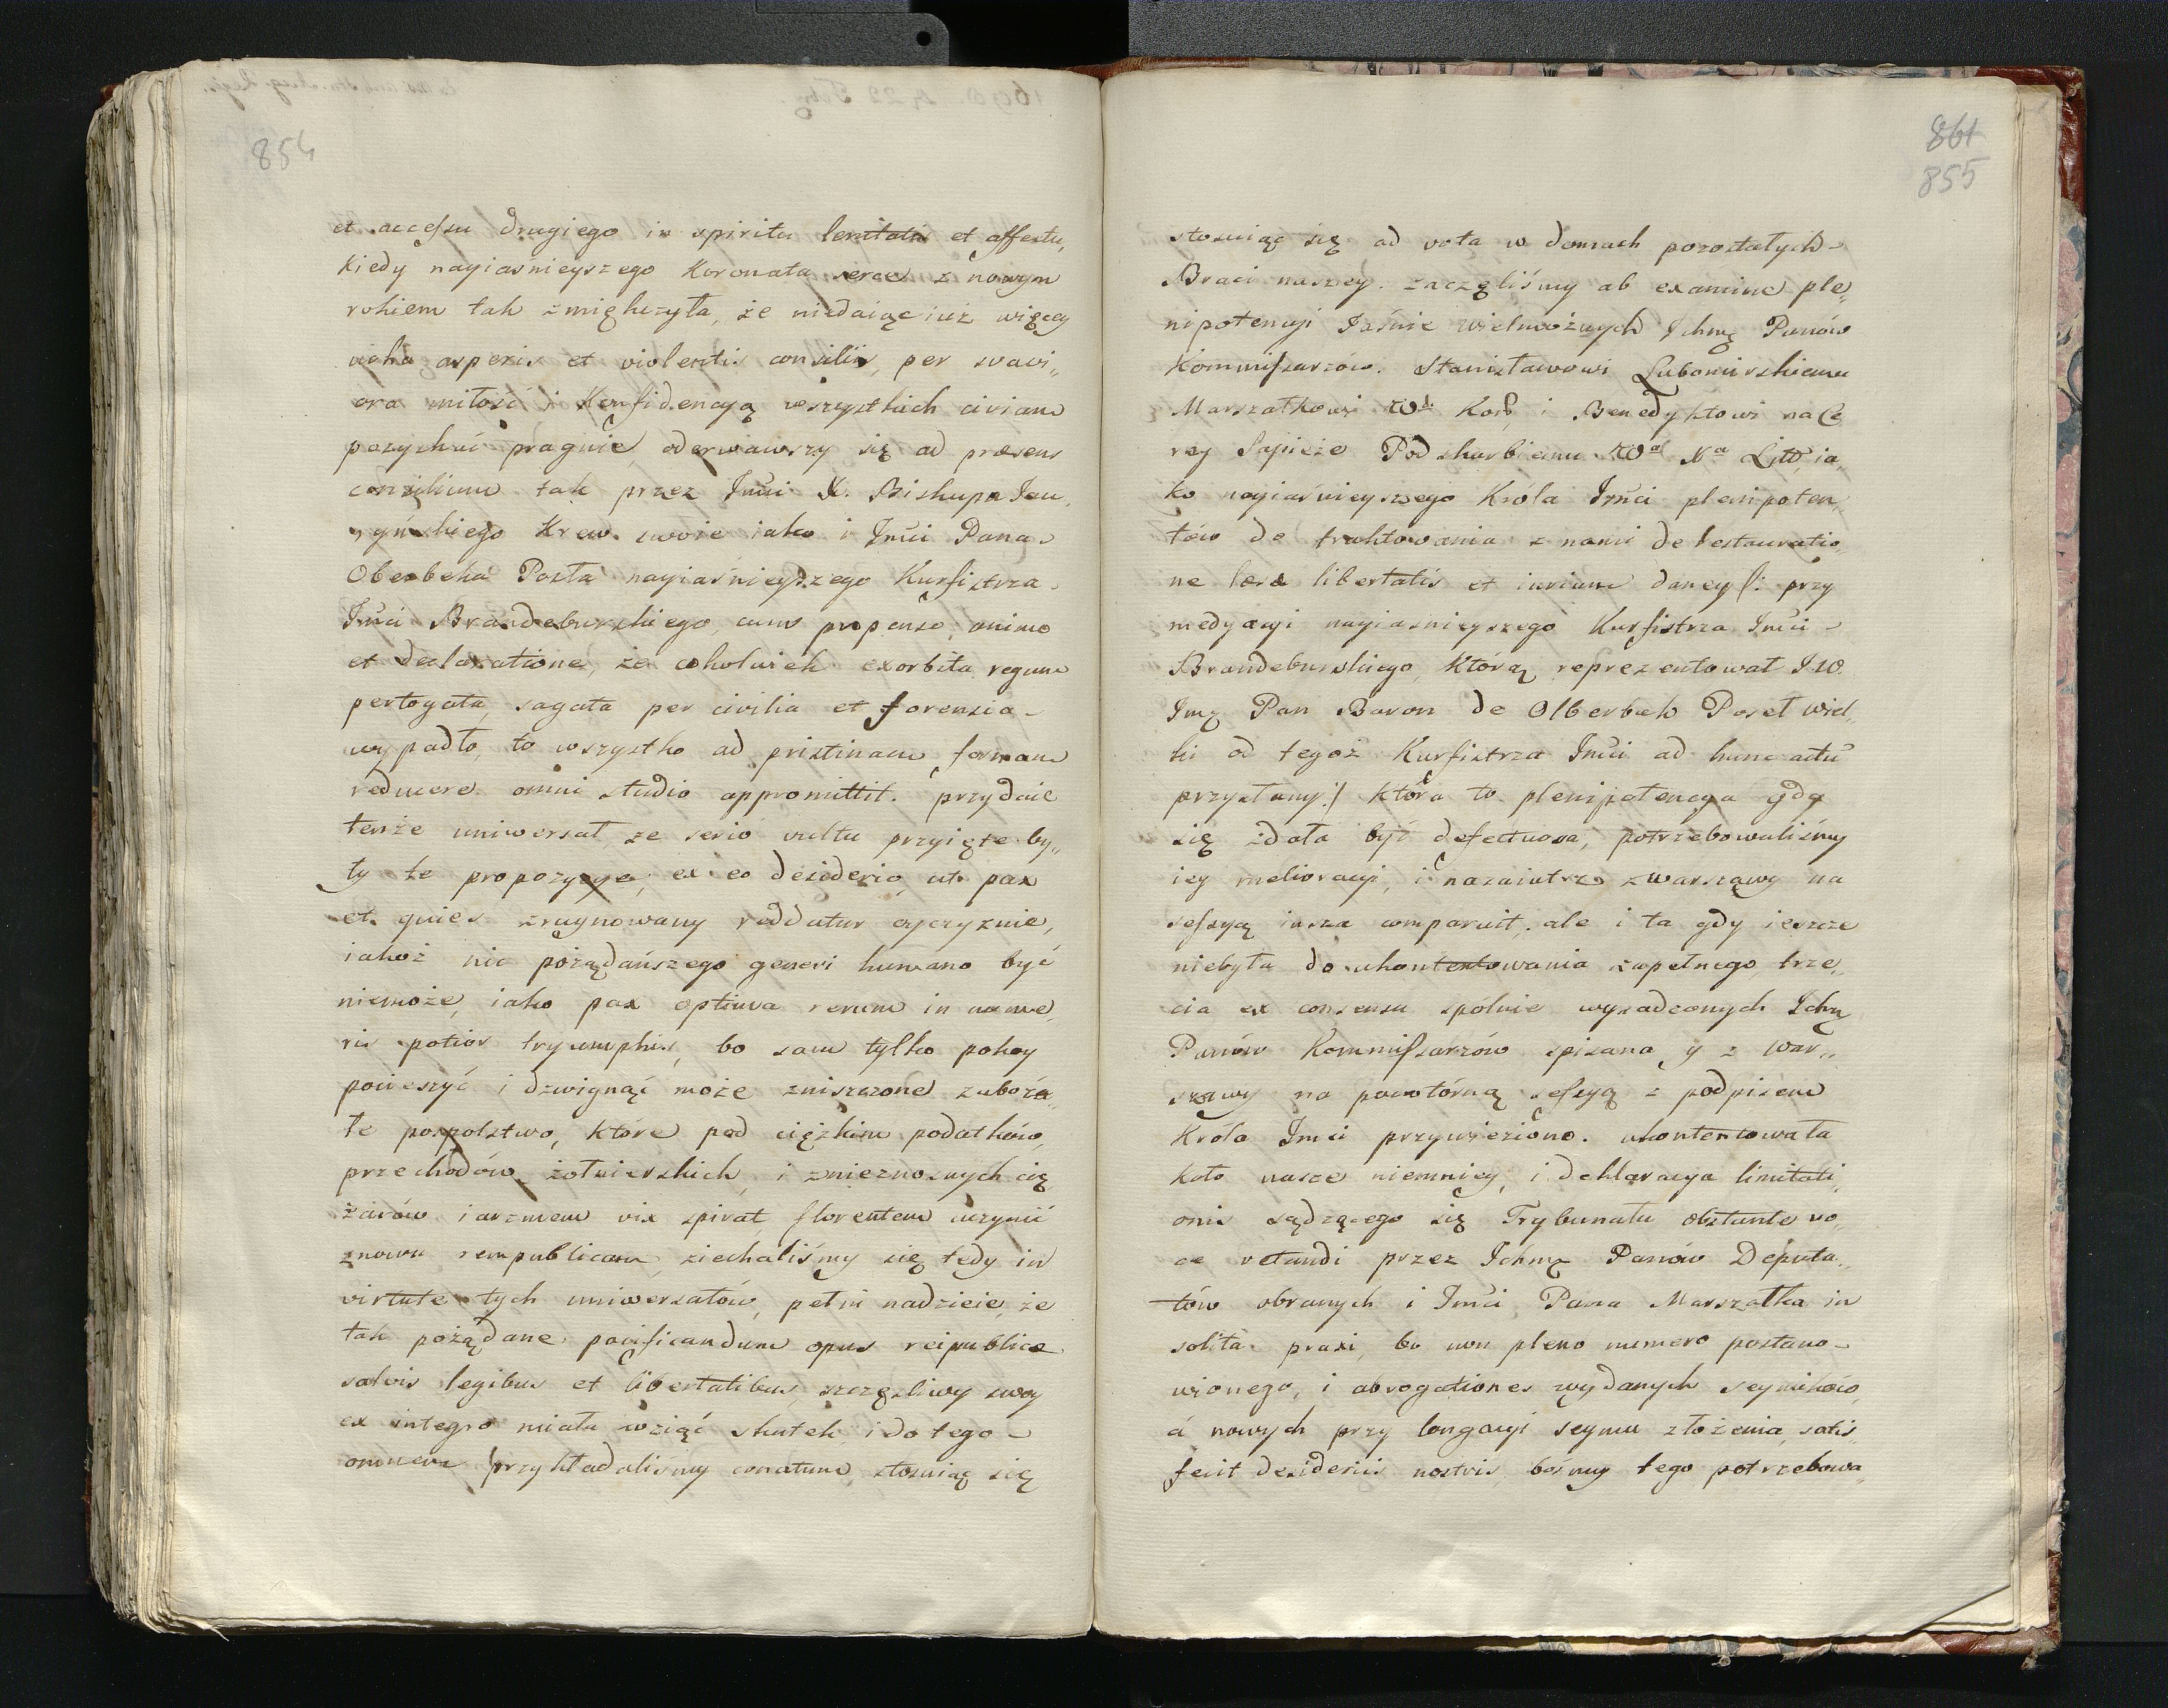 854
et accessu drugiego in spiritu lenitatis et affectu,
kiedy nayiasnieyszego Koronata serce z nowym
rokiem tak zmiękczyła, że niedaiąc iuż więcey
ucha asperis et violentis consiliis, per suavi„
ora miłość i Konfidencyą wszystkich civium
pozyskać pragnie, oderwawszy się ad præsens
consilium tak przez Jmci X. Biskupa
Krew swoie iako i Jmci Pana
Oberbeka Posła nayiaśnieyszego Kurfistrza
Jmci Brandeburskiego, cum propenso animo
et declaratione, że cokolwiek exorbita regum
pertogata, sagata per civilia et forensia
wypadło, to wszystko ad pristinam formam
reducere omni studio appromittit. przydaie
tenże uniwersał, ze serio vultu przyięte by„
ły te propozycye, ex eo desiderio, ut pax
et quies zruynowany reddatur oyczyznie,
iakoż nic pożądańszego generi humano być
niemoże, iako pax optima rerum in nume„
ris potior tryumphis, bo sam tylko pokoy
pocieszyć i dzwignąć może zniszczone zuboża„
łe pospolstwo, które pod ciężkim podatków,
przechodów żołnierskich, i znieznosnych cię„
żarów iarzmem vix spirat florentem uczynić
znowu rempublicam, ziechaliśmy się tedy in
virtute tych uniwersałów, pełni nadzieie, że
tak pożądane pacificandum opus reipublicæ
salvis legibus et libertatibus szczęśliwy swoy
ex integro miało wziąć skutek, i do tego
omnem przykładaliśmy conatum, stosuiąc się
861
855
stosuiąc się ad vota w domach pozostałych
Braci naszey. zaczęliśmy ab examine ple„
nipotencyi Jaśnie wielmożnych Ichmę Panów
Kommissarzów. Stanisławowi Lubomirskiemu
Marszałkowi Wl. Kor, i Benedyktowi na Ce
rey Sapieże Podskarbiemu Wo Xa Litt, ia„
ko nayiaśnieyszego Króla Jmci plenipoten„
tów do traktowania z nami de restauratio„
ne læsæ libertatis et iurium daney /: przy
medyacyi nayiasnieyszego Kurfistrza Jmci
Brandeburskiego, którą reprezentował JW.
Jmę Pan Baron de Olberbek Poseł wiel„
ki od tegoż Kurfistrza Jmci ad hunc actū
przysłany :/ która to plenipotencya gdy
się zdała być defectuosa, potrzebowaliśmy
iey melioracyi, i nazaiutrz z warszawy na
sessyą insza comparuit, ale i ta gdy ieszcze
niebyła do ukontentowania zupełnego, trze„
cia ex consensu spólnie wysadzonych Ichm
Panów Kommissarzów spisana y z War„
szawy na powtórną sessyą z podpisem
Króla Jmci przywieziono. ukontentowała
koło nasze niemniey, i deklaracya limitati„
onis sądzącego się Trybunału obstante vo„
ce vetandi przez Ichmę Panów Deputa„
tów obranych i Jmci Pana Marszałka in
solita praxi, bo non pleno numero postano„
wionego, i abrogationes wydanych seymików,
á nowych przy longacyi seymu złożenia, satis„
fecit desideriis nostris, bośmy tego potrzebowa„